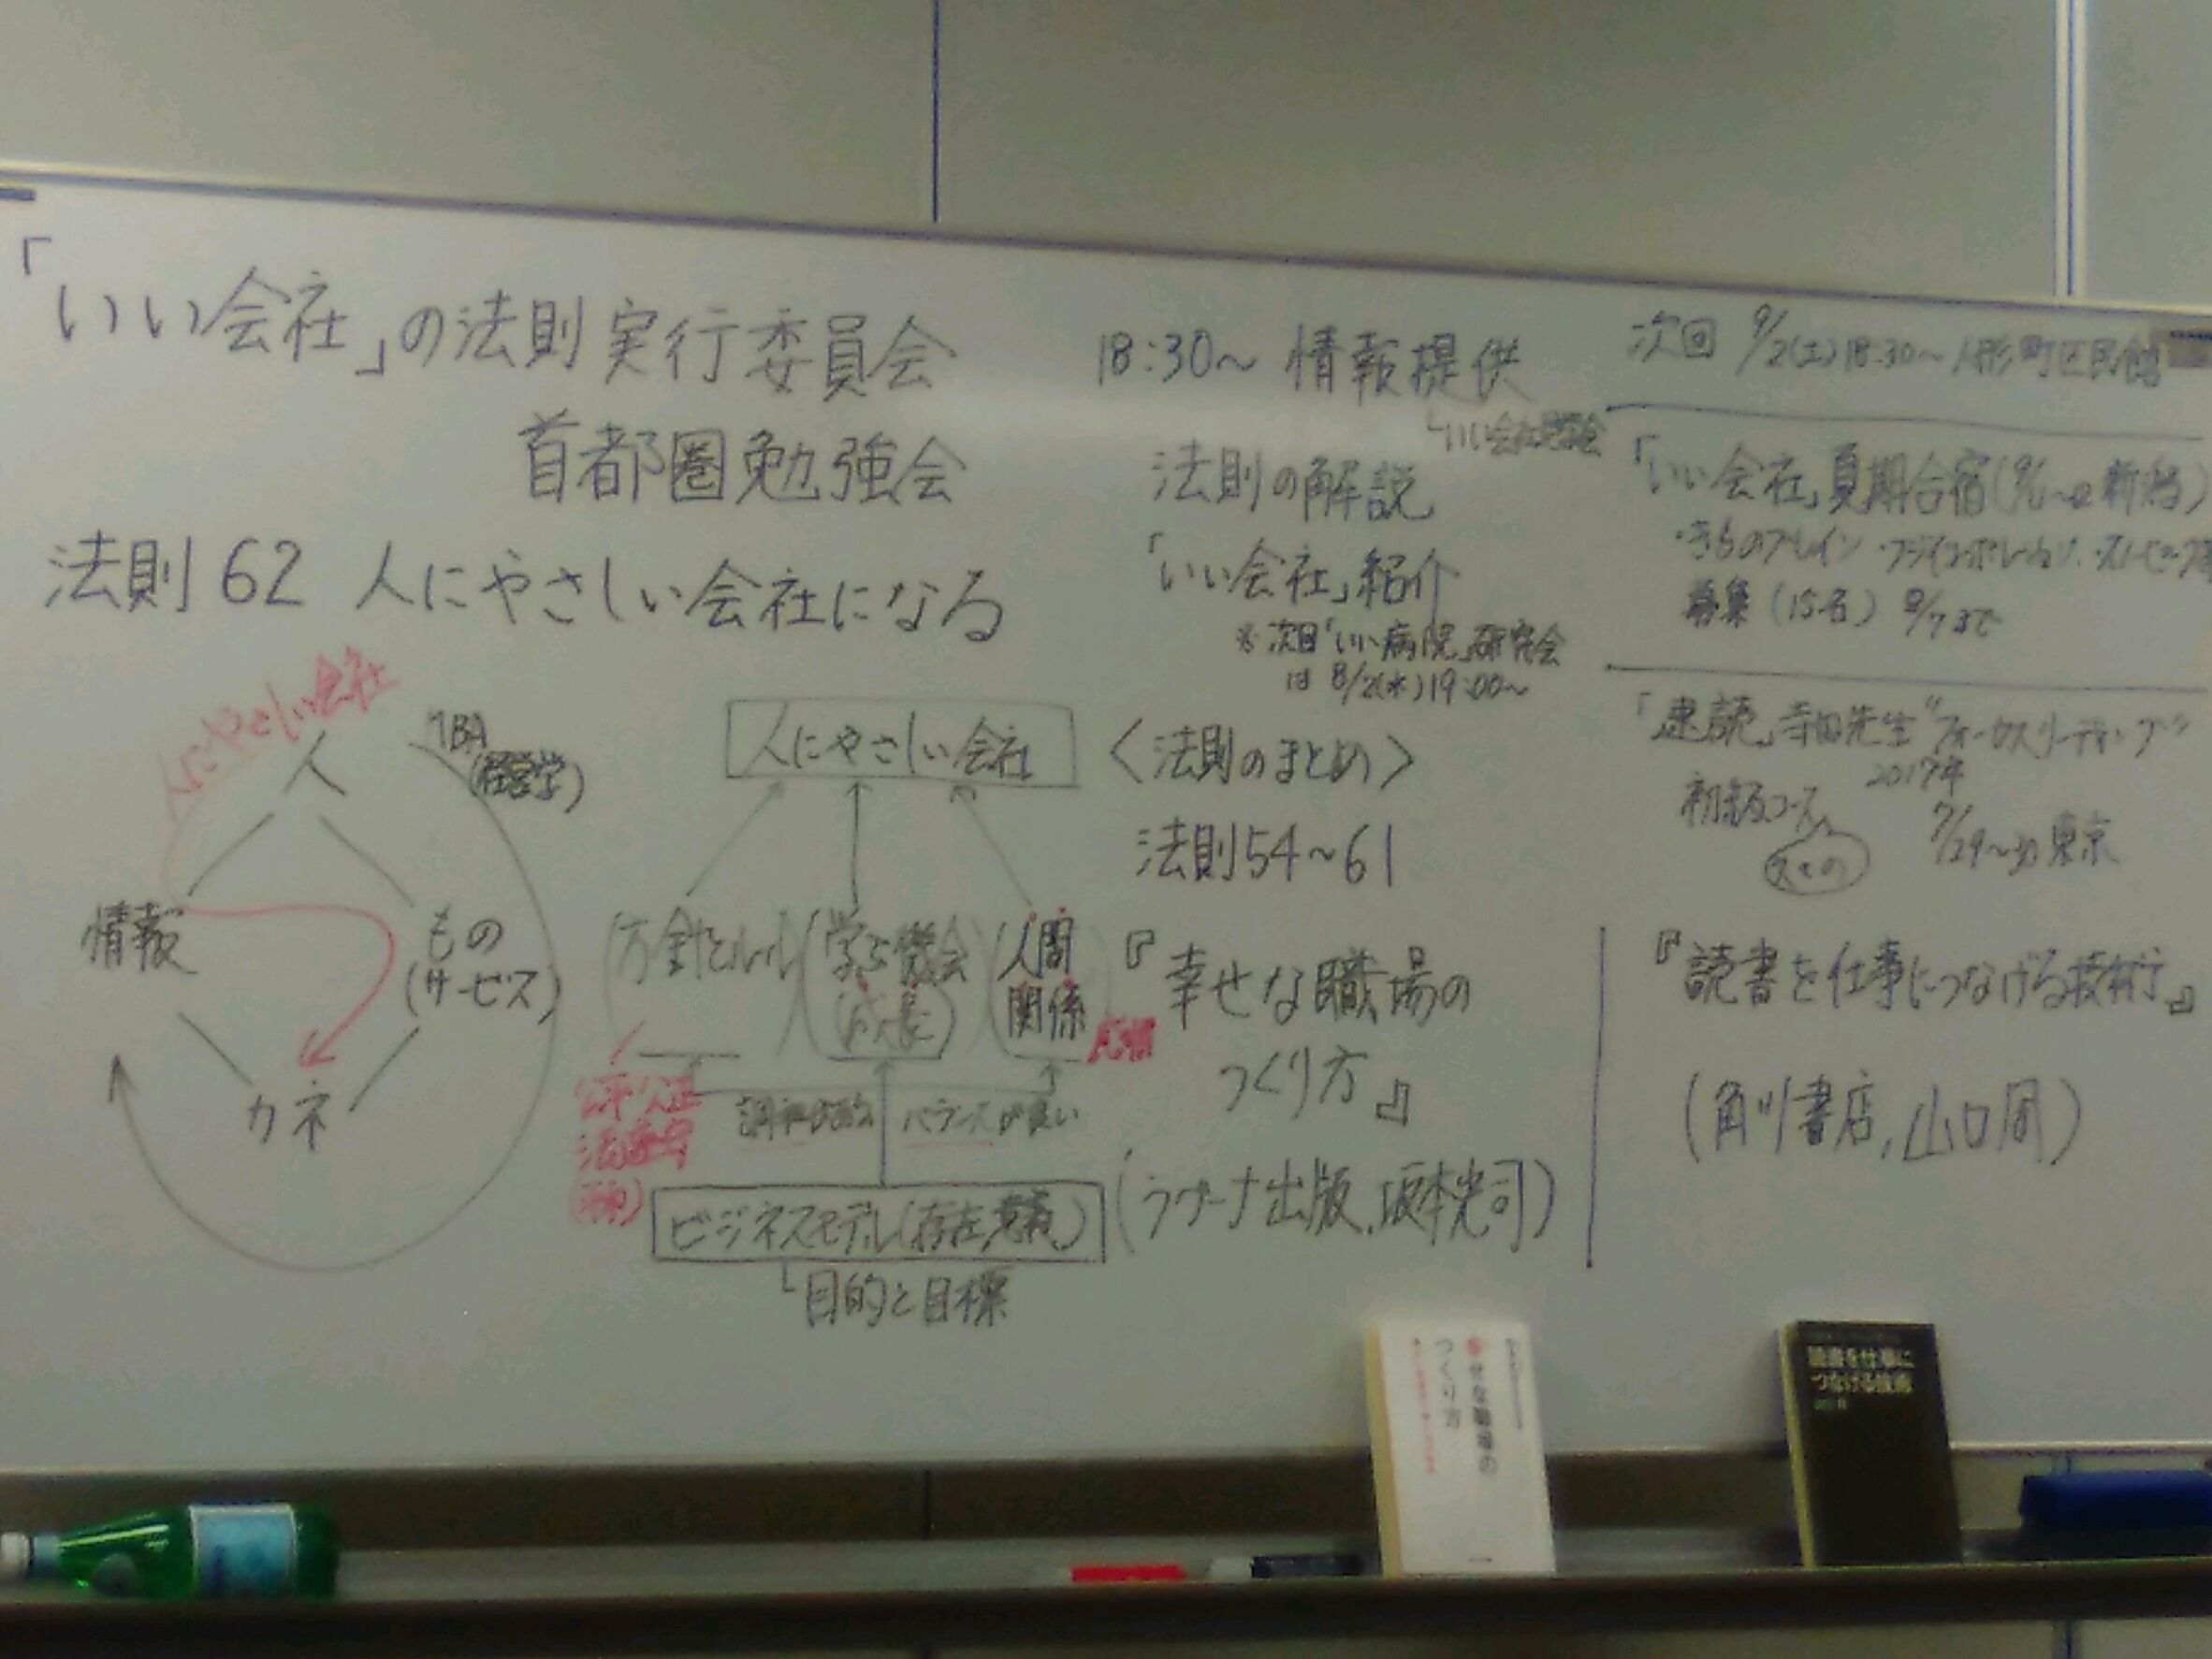 「いい会社」の法則実行委員会
首都圏勉強会
法則62 人にやさしい会社になる
人にやさしい会社
人
MBA
(経営学)
情報
もの
(サービス)
カネ
人にやさしい会社
方針とルール
学ぶ機会
(成長)
人間
関係
公平公正
法遵守
バランスが良い
ビジネスモデル(存在意義)
└目的と目標
18:30〜 情報提供
└いい会社勉強会
法則の解説
「いい会社」紹介
※次回「いい病院」研究会
は 8/2(水)19:00〜
〈法則のまとめ〉
法則54〜61
『幸せな職場の
つくり方』
(ラグーナ出版、坂本光司)
次回 9/2(土)18:30〜人形町区民館
「いい会社」夏期合宿(9/ 新潟)
・きものブレイン ・フジイコーポレーション
募集(15名) 8/7まで
「速読」寺田先生"フォーカスリーディング"
2017年
初級コース
7/29〜30東京
『読書を仕事につなげる技術』
(角川書店、山口周)
幸せな職場の
つくり方
読書を仕事に
つなげる技術